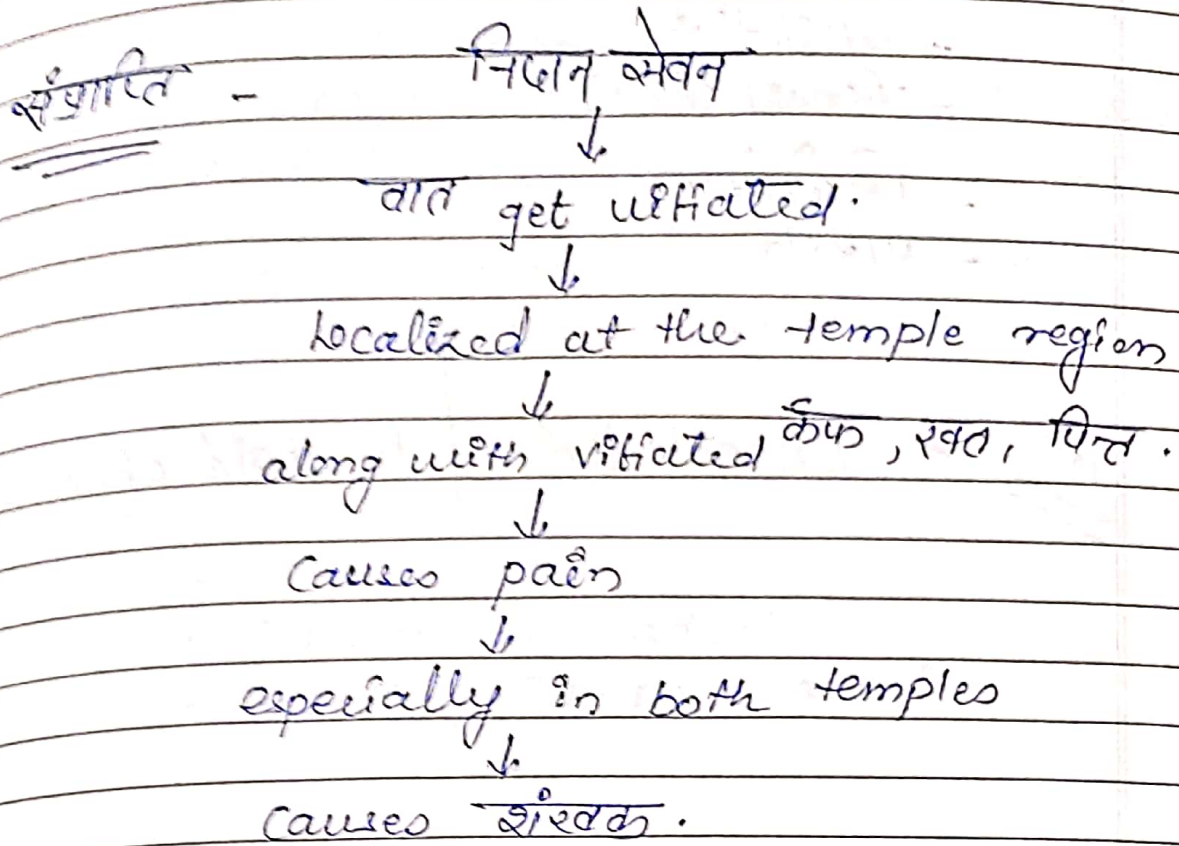 संप्राप्ति - निदान सेवन
↓
वात get vitiated.
↓
Localized at the temple region
↓
along with vitiated कफ, रक्त, पित्त.
↓
Causes pain
↓
especially in both temples
↓
Causes शंखक.